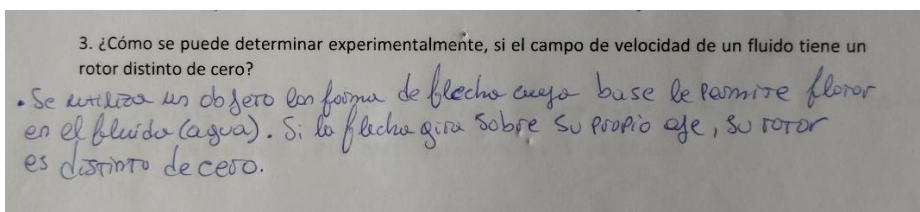 3. ¿Cómo se puede determinar experimentalmente, si el campo de velocidad de un fluido tiene un
rotor distinto de cero?
• Se utiliza un objero con forma de flecha cuya base le permite florar
en el fluido (agua). Si la flecha gira sobre su propio eje, su rotor
es distinto de cero.